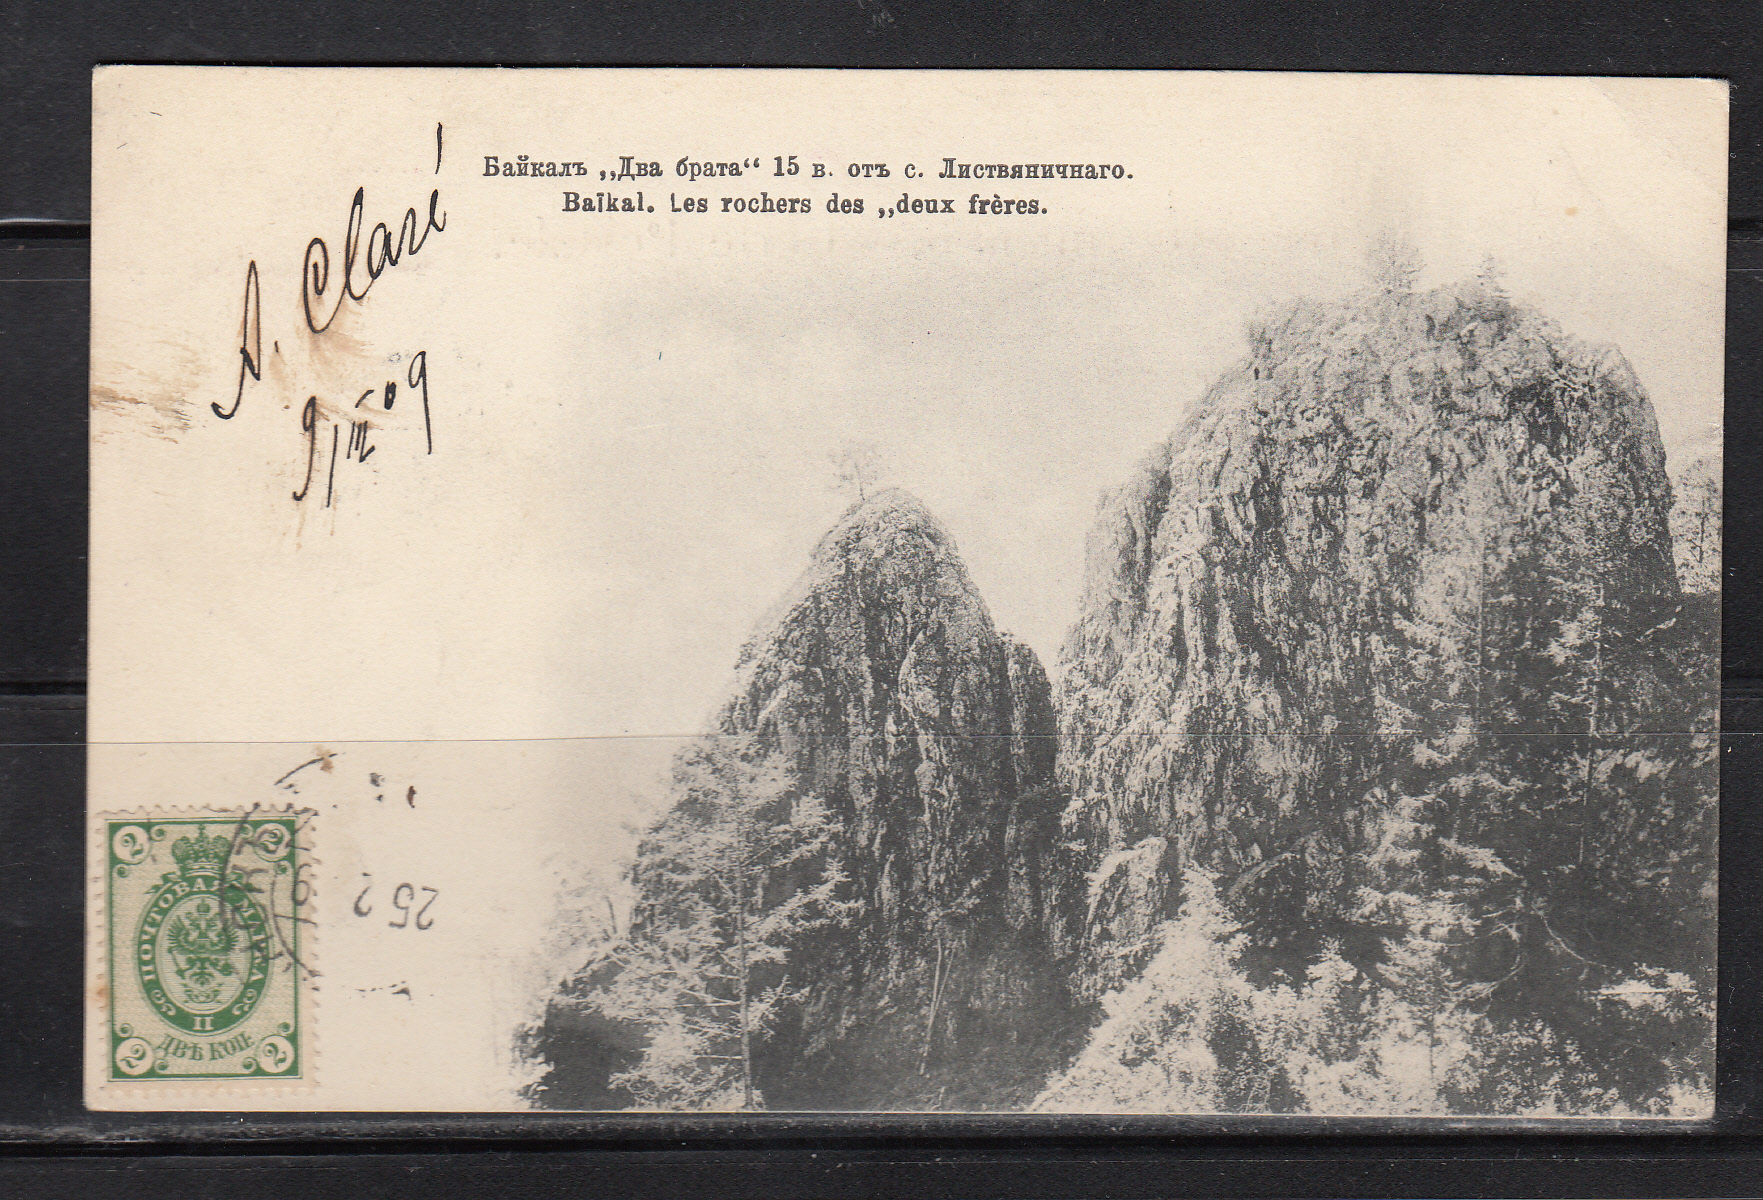 Байкалъ „Два брата“ 15 в. отъ с. Листвяничнаго.
Baïkal. Les rochers des „deux frères.
A. Clarí
9/III 09
2 2
ПОЧТОВАЯ МАРКА
II
ДВѢ КОП.
2 2
25 2